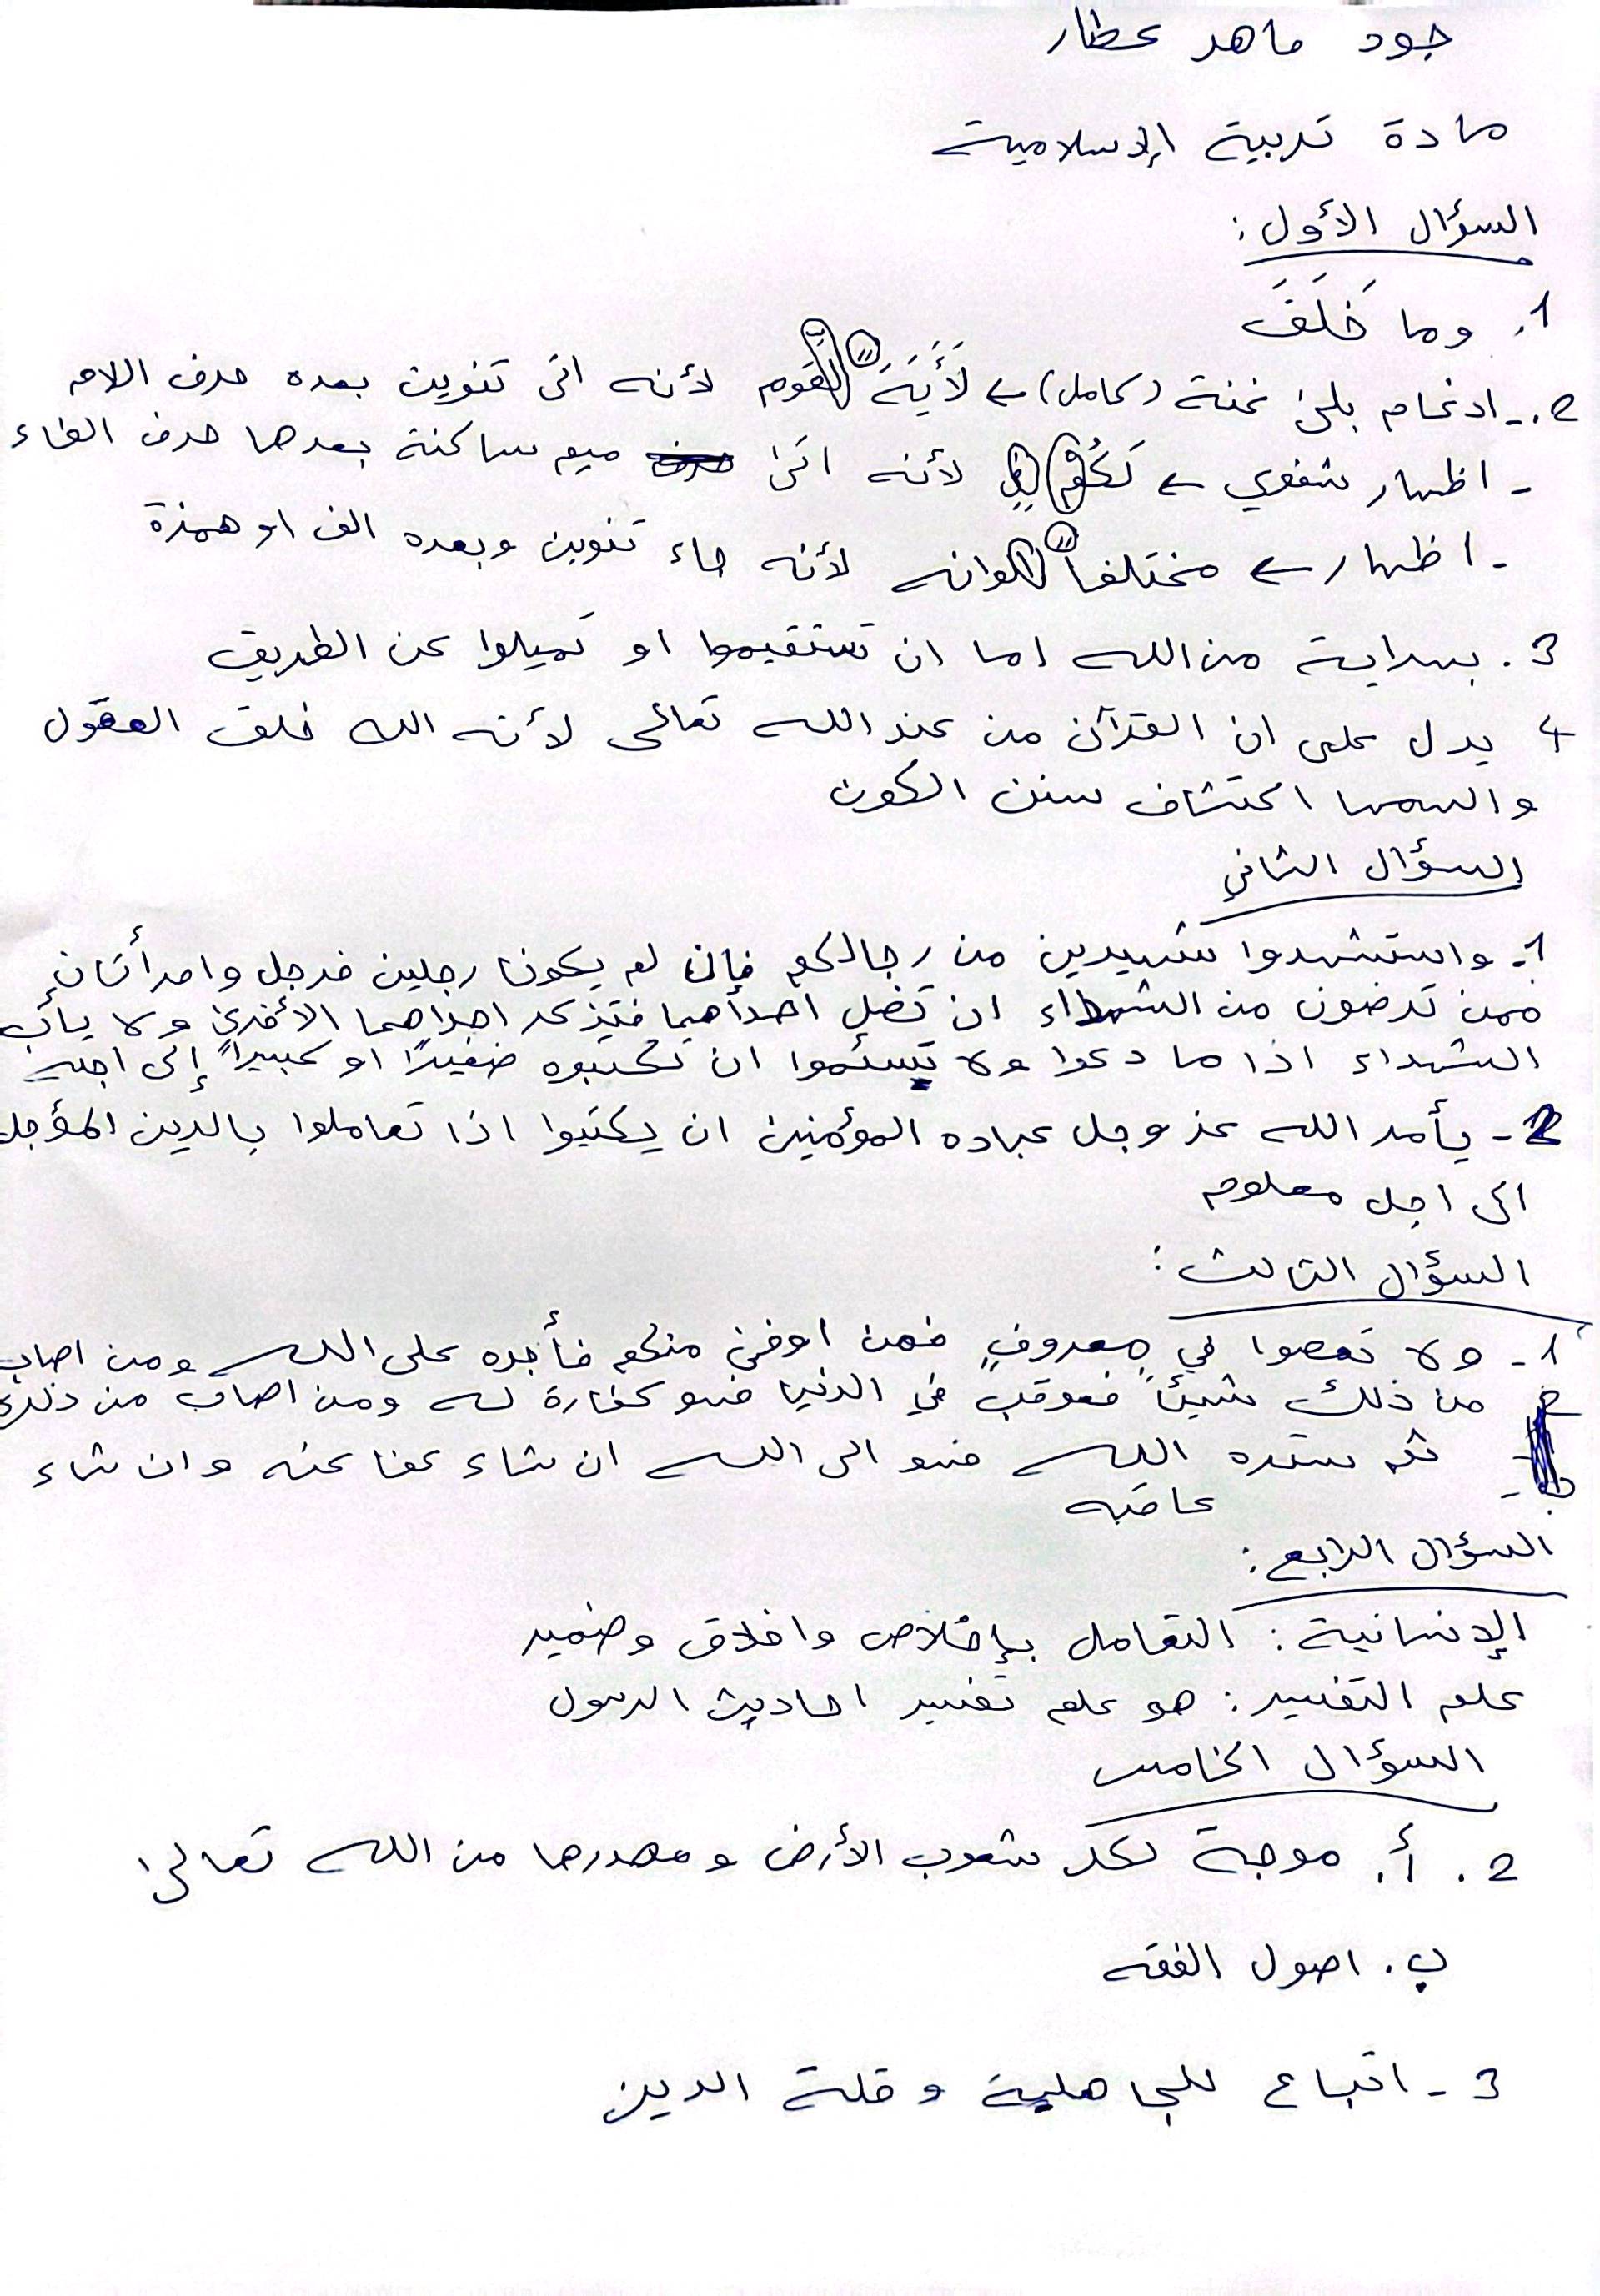 جود ماهر عطار
مادة تربية الإسلامية
السؤال الأول :
1. وما خَلَقَ
2. - ادغام بلى غنة (كامل) ← لَأَيَةً لِّقوم لأنه اتى تنوين بعده حرف اللام
- اظهار شفوي ← لَكُم فِي لأنه اتى ميم ساكنة بعدها حرف الفاء
- اظهار ← مختلفاً الوانه لأنه جاء تنوين وبعده الف او همزة
3. بهداية من الله اما ان تستقيموا او تميلوا عن الطريق
4 يدل على ان القرآن من عند الله تعالى لأنه الله خلق العقول
والهمها اكتشاف سنن الكون
السؤال الثاني
1- واستشهدوا شهيدين من رجالكم فإن لم يكونا رجلين فرجل وامرأتان
فمن ترضون من الشهداء ان تضل احداهما فتذكر احداهما الأخرى ولا يأب
الشهداء اذا ما دعوا ولا تسئموا ان تكتبوه صغيرًا او كبيراً إلى اجله
2- يأمر الله عز وجل عباده المؤمنين ان يكتبوا اذا تعاملوا بالدين المؤجل
الى اجل معلوم
السؤال الثالث :
1- ولا تعصوا في معروفٍ فمن اوفى منكم فأجره على الله ومن اصاب
من ذلك شيئاً فعوقب في الدنيا فهو كفارة له ومن اصاب من ذلك
ثم ستره الله فهو الى الله ان شاء عفا عنه وان شاء
عاقبه
السؤال الرابع :
الإنسانية : التعامل بإخلاص واخلاق وضمير
علم التفسير : هو علم تفسير احاديث الرسول
السؤال الخامس
2. أ. موجة لكل شعوب الأرض ومصدرها من الله تعالى
ب. اصول الفقه
3- اتباع للجاهلية وقلة الدين